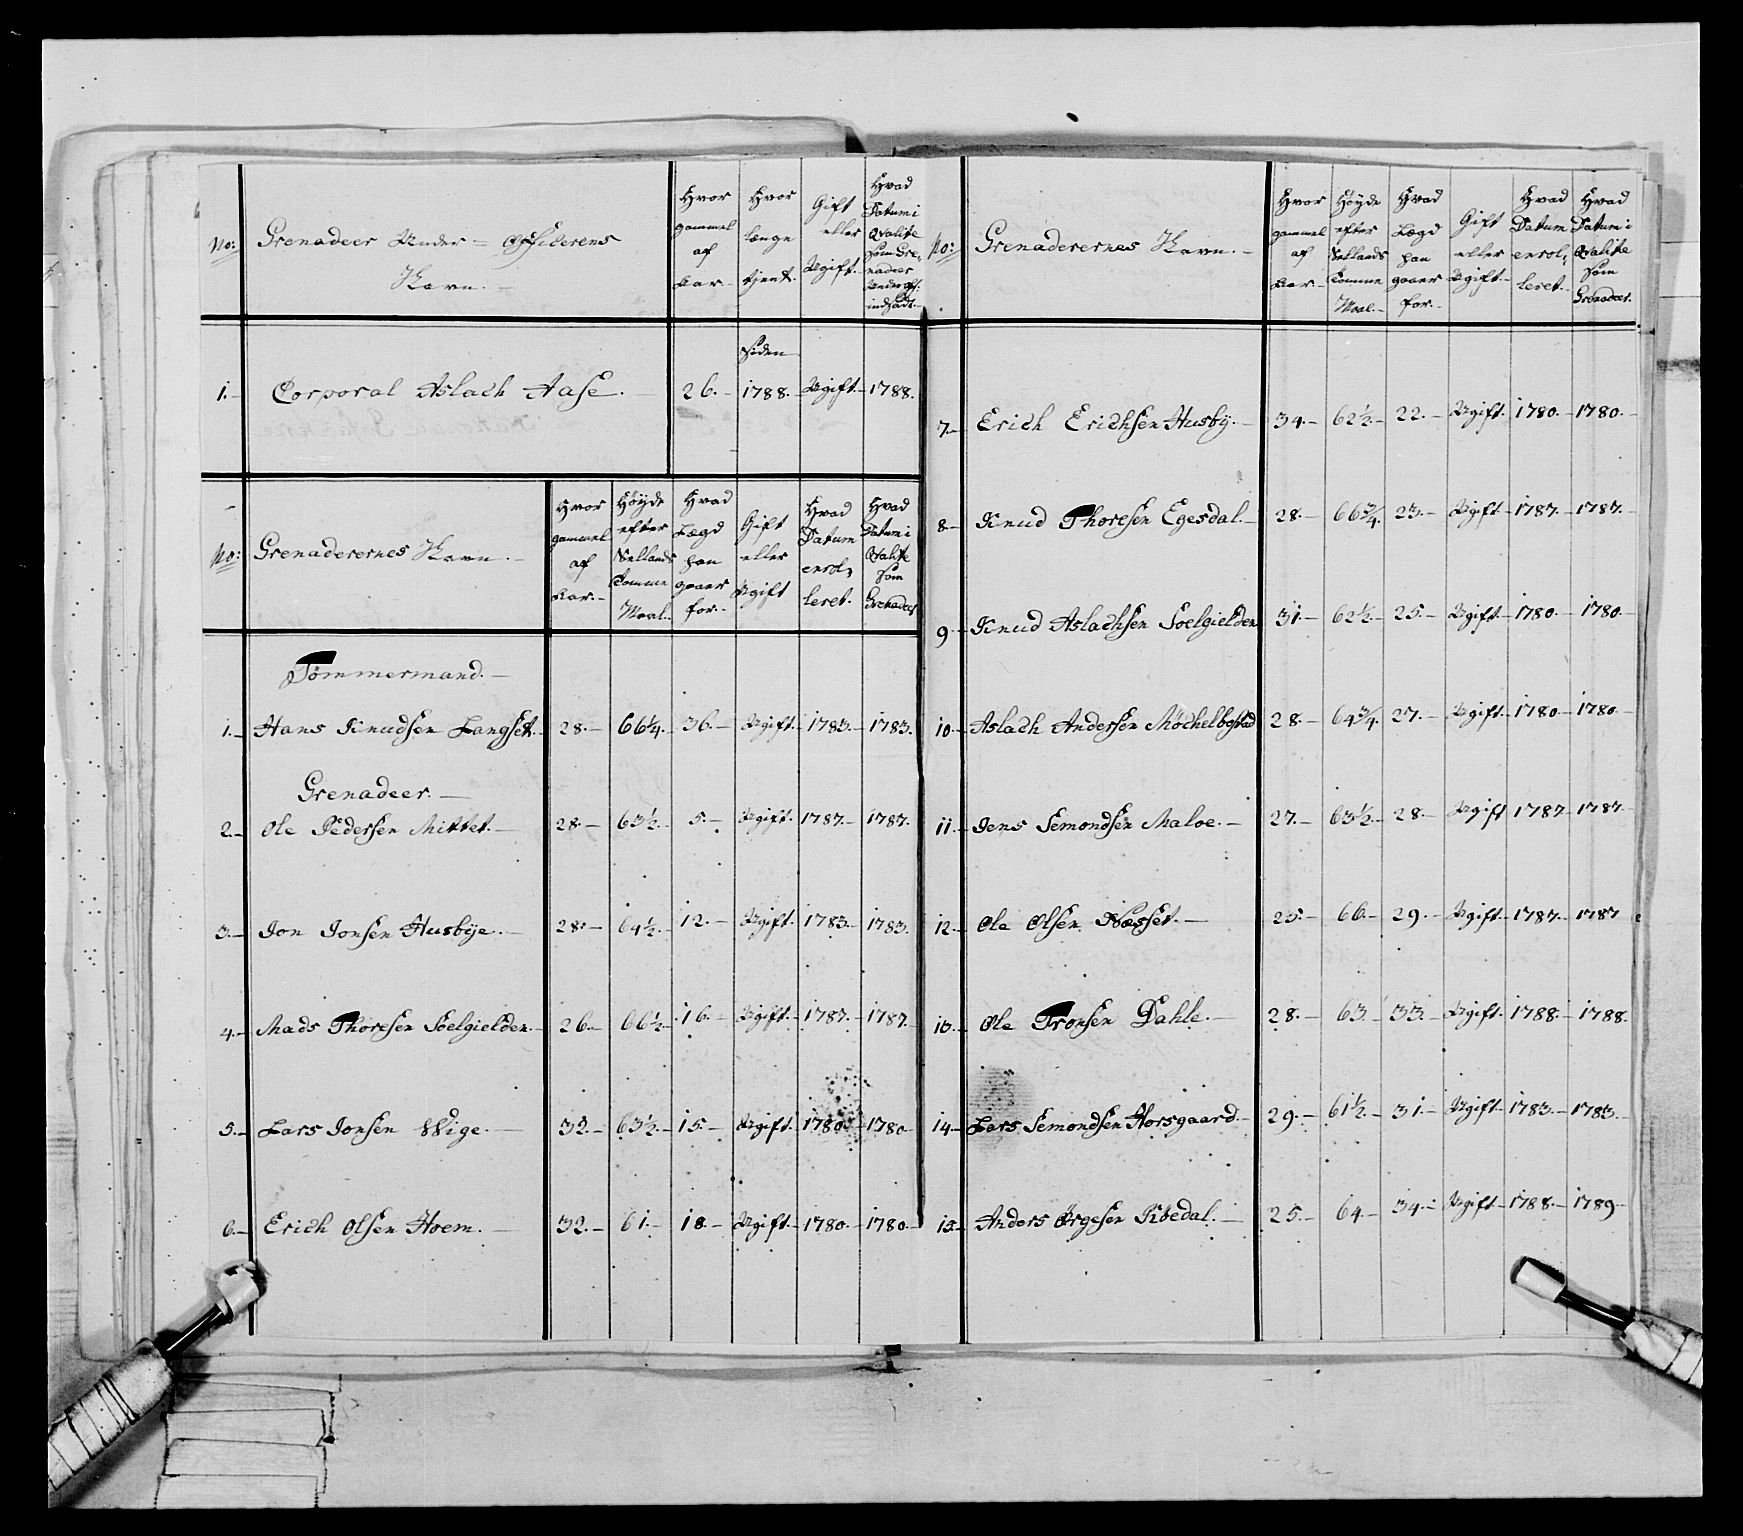 No: Grenadeer Under-Officerens Navn. Hvor gammel af Aar. Hvor længe tjent. Gift eller Ugift. Hvad Datum i Qvalite som Grenadeer Under Of: indsadt.
1. Corporal Aslach Aase. 26. Siden 1788. Ugift. 1788.
No: Grenaderernes Navn. Hvor gammel af Aar. Höyde efter Sellands Tomme Maal. Hvad Lægd han gaaer for. Gift eller Ugift Hvad Datum enrolleret. Hvad Datum i Qvalite som Grenadeer
Tømmermand.
1. Hans Knudsen Langset. 28. 66¼. 36. Ugift. 1783. 1783.
Grenadeer.
2. Ole Pedersen Mittet. 28. 63½. 5. Ugift. 1787. 1787.
3. Jon Jonsen Husbye. 28. 64½. 12. Ugift. 1783. 1783.
4. Mads Thoresen Soelgielden. 26. 66½. 16. Ugift. 1787. 1787.
5. Lars Jonsen Wige. 32. 63½. 15. Ugift. 1780. 1780
6. Erich Olsen Hoem. 32. 61. 18. Ugift. 1780. 1780
No: Grenaderernes Navn. Hvor gammel af Aar. Höyde efter Sellands Tomme Maal. Hvad Lægd han gaaer for. Gift eller Ugift. Hvad Datum enrolleret. Hvad Datum i Qvalite som Grenadeer.
7. Erich Erichsen Husby. 34. 62½. 22. Ugift. 1780. 1780.
8. Knud Thoresen Egesdal. 28. 66¾. 23. Ugift 1787. 1787.
9. Knud Aslachsen Soelgielden 31. 62½. 25. Ugift. 1780. 1780.
10. Aslach Andersen Möchelbostad 28. 64¾. 27. Ugift. 1780 1780
11. Jens Semondsen Maloe. 27. 63½. 28. Ugift 1787 1787.
12. Ole Olsen Næsset. 25. 66. 29. Ugift. 1787. 1787
13. Ole Tronsen Dahle. 28. 63. 33. Ugift. 1788. 1788.
14. Lars Semondsen Horsgaard. 29. 61½. 31. Ugift. 1783. 1783.
15. Anders Ørgesen Röedal. 25. 64. 34. Ugift. 1788. 1789